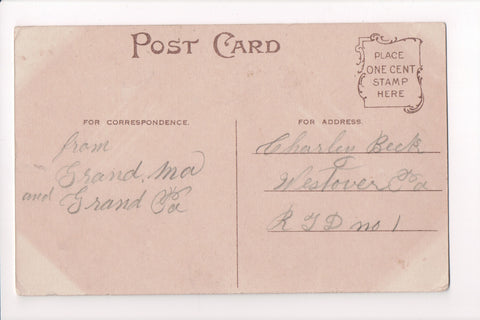 POST CARD
PLACE
ONE CENT
STAMP
HERE
FOR CORRESPONDENCE.
FOR ADDRESS.
from
Grand, Ma
and Grand Pa
Charley Beck
Westover Pa
R F D no 1